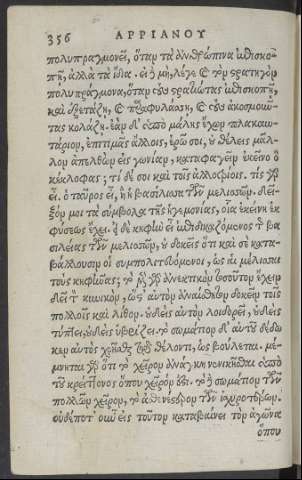 356 ΑΡΡΙΑΝΟΥ
πολυπραγμονεῖ, ὅταν τὰ ἀνθρώπινα ἐπισκο-
πῇ, ἀλλὰ τὰ ἴδια. εἰ ἢ μὴ, λέγε καὶ τὸν στρατηγὸν
πολυπράγμονα, ὅταν τοὺς στρατιώτας ἐπισκοπῇ,
καὶ ἐξετάζῃ, καὶ παραφυλάσσῃ, καὶ τοὺς ἀκοσμοῦν-
τας κολάζῃ. ἐὰν δ' ὑπὸ μάλης ἔχων πλακουν-
τάριον, ἐπιτιμᾷς ἄλλοις, ἐρῶ σοι, οὐ θέλεις μᾶλ-
λον ἀπελθὼν εἰς γωνίαν, καταφαγεῖν ἐκεῖνο ὃ
κέκλοφας; τί δέ σοι καὶ τοῖς ἀλλοτρίοις. τίς γὰρ
εἶ. ὁ ταῦρος εἶ, ἢ ἡ βασίλισσα τῶν μελισσῶν. δεῖ-
ξόν μοι τὰ σύμβολα τῆς ἡγεμονίας, οἷα ἐκείνη ἐκ
φύσεως ἔχει. εἰ δὲ κηφὴν εἶ ἐπιδικαζόμενος τ βα-
σιλείας τῶν μελισσῶν, οὐ δοκεῖς ὅτι καὶ σὲ κατα-
βάλλουσιν οἱ συμπολιτευόμενοι, ὡς αἱ μέλισσαι
τοὺς κηφῆνας; τὸ μὲν γὰρ ἀνεκτικὸν τοσοῦτον ἔχειν
δεῖ τ κυνικὸν, ὡς αὐτὸν ἀναίσθητον δοκεῖν τοῖς
πολλοῖς καὶ λίθον. οὐδεὶς αὐτὸν λοιδορεῖ, οὐδεὶς
τύπτει, οὐδεὶς ὑβρίζει. τὸ σωμάτιον δ' αὐτοῦ δέδω
κεν αὐτὸς χρῆσθαι τῷ θέλοντι, ὡς βούλεται. μέ-
μνηται γὰρ ὅτι τὸ χεῖρον ἀνάγκη νενικῆσθαι ὑπὸ
τοῦ κρείττονος ὅπου χεῖρόν ἐστι. τὸ δὲ σωμάτιον τῶν
πολλῶν χεῖρον, τὸ ἀσθενέστερον τῶν ἰσχυροτέρων.
οὐδέποτ' οὖν εἰς τοῦτον καταβαίνει τὸν ἀγῶνα
ὅπου